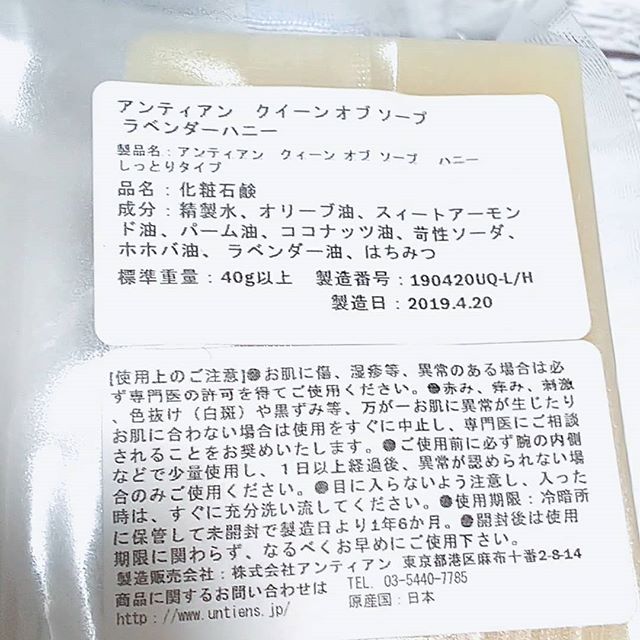 アンティアン クイーン オブ ソープ
ラベンダーハニー
製品名：アンティアン クィーン オブ ソープ ハニー
しっとりタイプ
品名：化粧石鹸
成分：精製水、オリーブ油、スィートアーモン
ド油、パーム油、ココナッツ油、苛性ソーダ、
ホホバ油、ラベンダー油、はちみつ
標準重量：40g以上 製造番号：190420UQ-L/H
製造日：2019.4.20
[使用上のご注意]●お肌に傷、湿疹等、異常のある場合は必
ず専門医の許可を得てご使用ください。●赤み、痒み、刺激
、色抜け（白斑）や黒ずみ等、万が一お肌に異常が生じたり
お肌に合わない場合は使用をすぐに中止し、専門医にご相談
されることをお奨めいたします。●ご使用前に必ず腕の内側
などで少量使用し、１日以上経過後、異常が認められない場
合のみご使用ください。●目に入らないよう注意し、入った
時は、すぐに充分洗い流してください。●使用期限：冷暗所
に保管して未開封で製造日より1年6か月。●開封後は使用
期限に関わらず、なるべくお早めにご使用下さい。
製造販売会社：株式会社アンティアン 東京都港区麻布十番2-8-14
商品に関するお問い合わせは TEL. 03-5440-7785
http://www.untiens.jp/ 原産国：日本